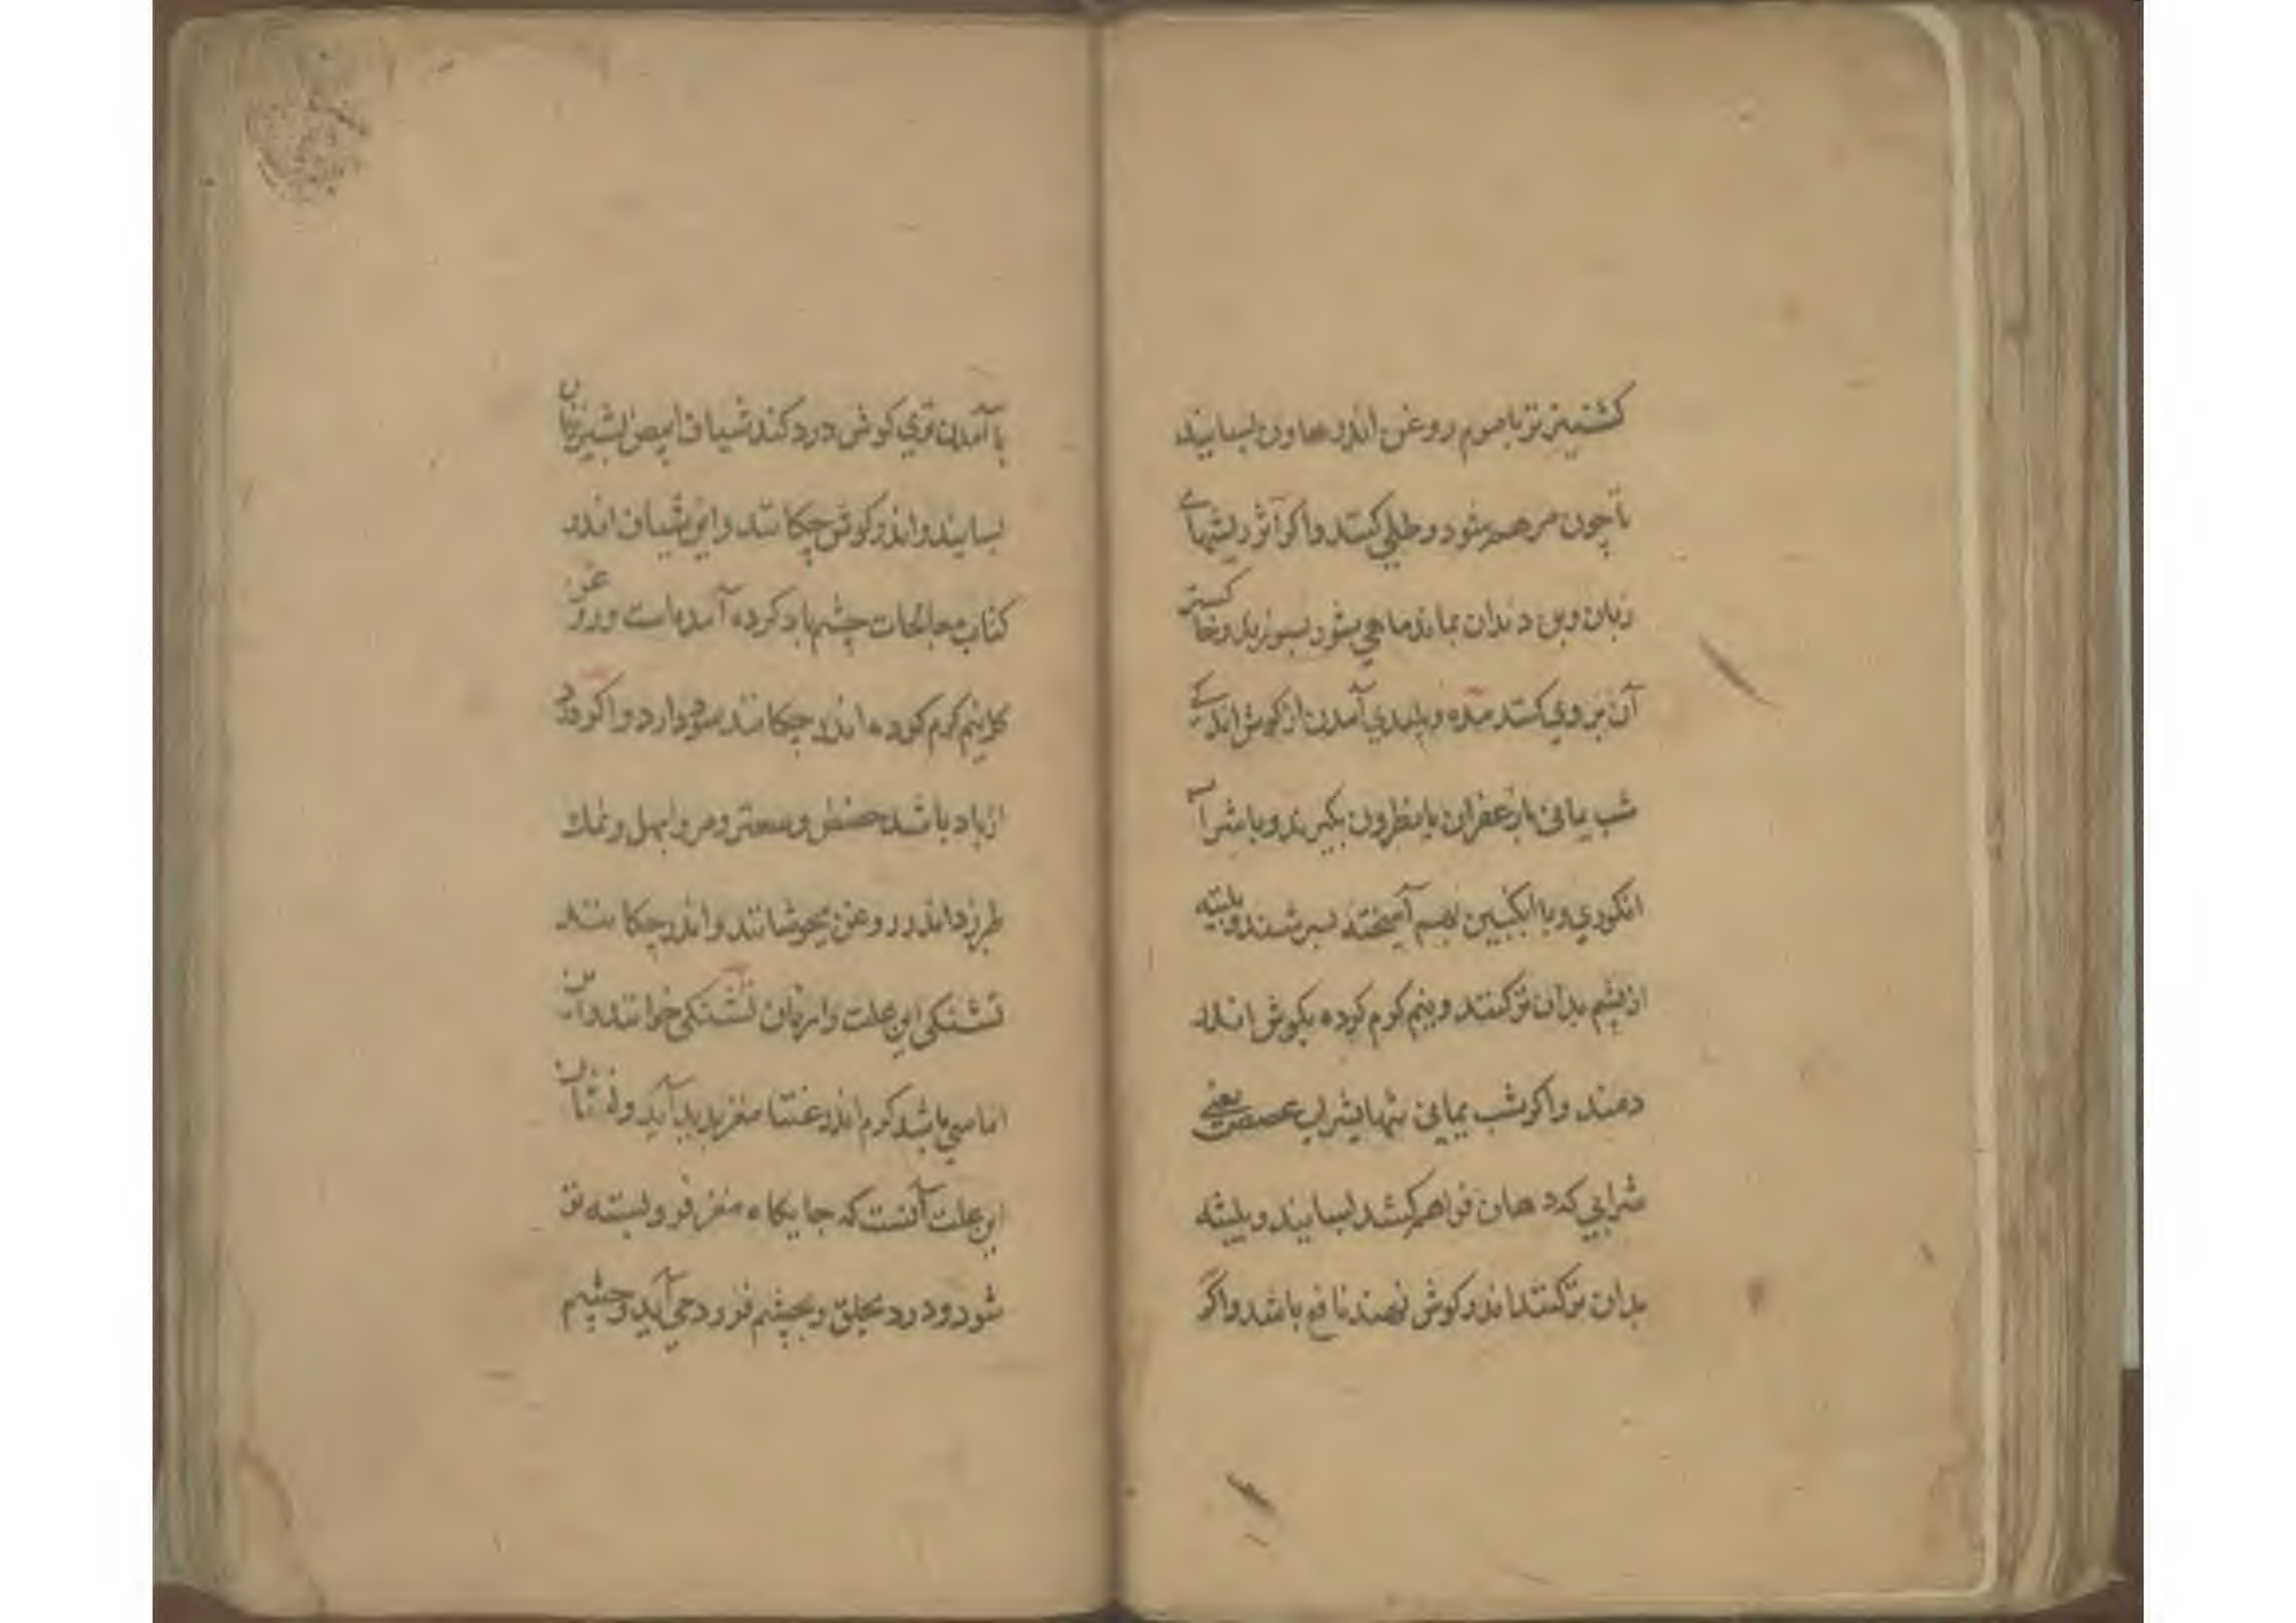 کشنیز تر با موم روغن اندر هاون بسایند
تا چون مرهم شود و طلی کنند و اکر اثر ریشهاے
زبان و بن دندان بماند ماهی شور بسوزند و خاکستر
آن بر وی کنند مده و پلیدی آمدن از کوش اندکے
شب یمانی با زعفران یا نطرون بکیرند و با شراب
انکوری و با انکبین بهم آمیخته بسرشند و پلیته
از پشم بدان تر کنند و نیم کرم کرده بکوش اندر
دمند و اکر شب یمانی تنها بشراب عفصت یعنی
شرابی که دهان فراهم کشد بسایند و پلیته
بدان تر کنند اندر کوش نهند نافع باشد و اکر
با آمدن وی کوش درد کند شیاف ابیض بشیر زنان
بسایند و اندر کوش چکانند و این شیاف اندر
کتاب معالجات چشم یاد کرده آمده است و روغن
کل نیم کرم کرده اندر چکانند سود دارد و اکر درد
از باد باشد و سعتر و مر و ابهل و نمک
طبرزد اندر روغن بجوشانند و اندر چکانند
تشنکی این علت را تشنکی خوانند و آن
اماسی باشد کرم اندر مغز پدید آید و نشان
این علت آنست که جایکاه مغز فرو نشسته تر
شود و درد بحلق و بچشم فرود می آید و چشم